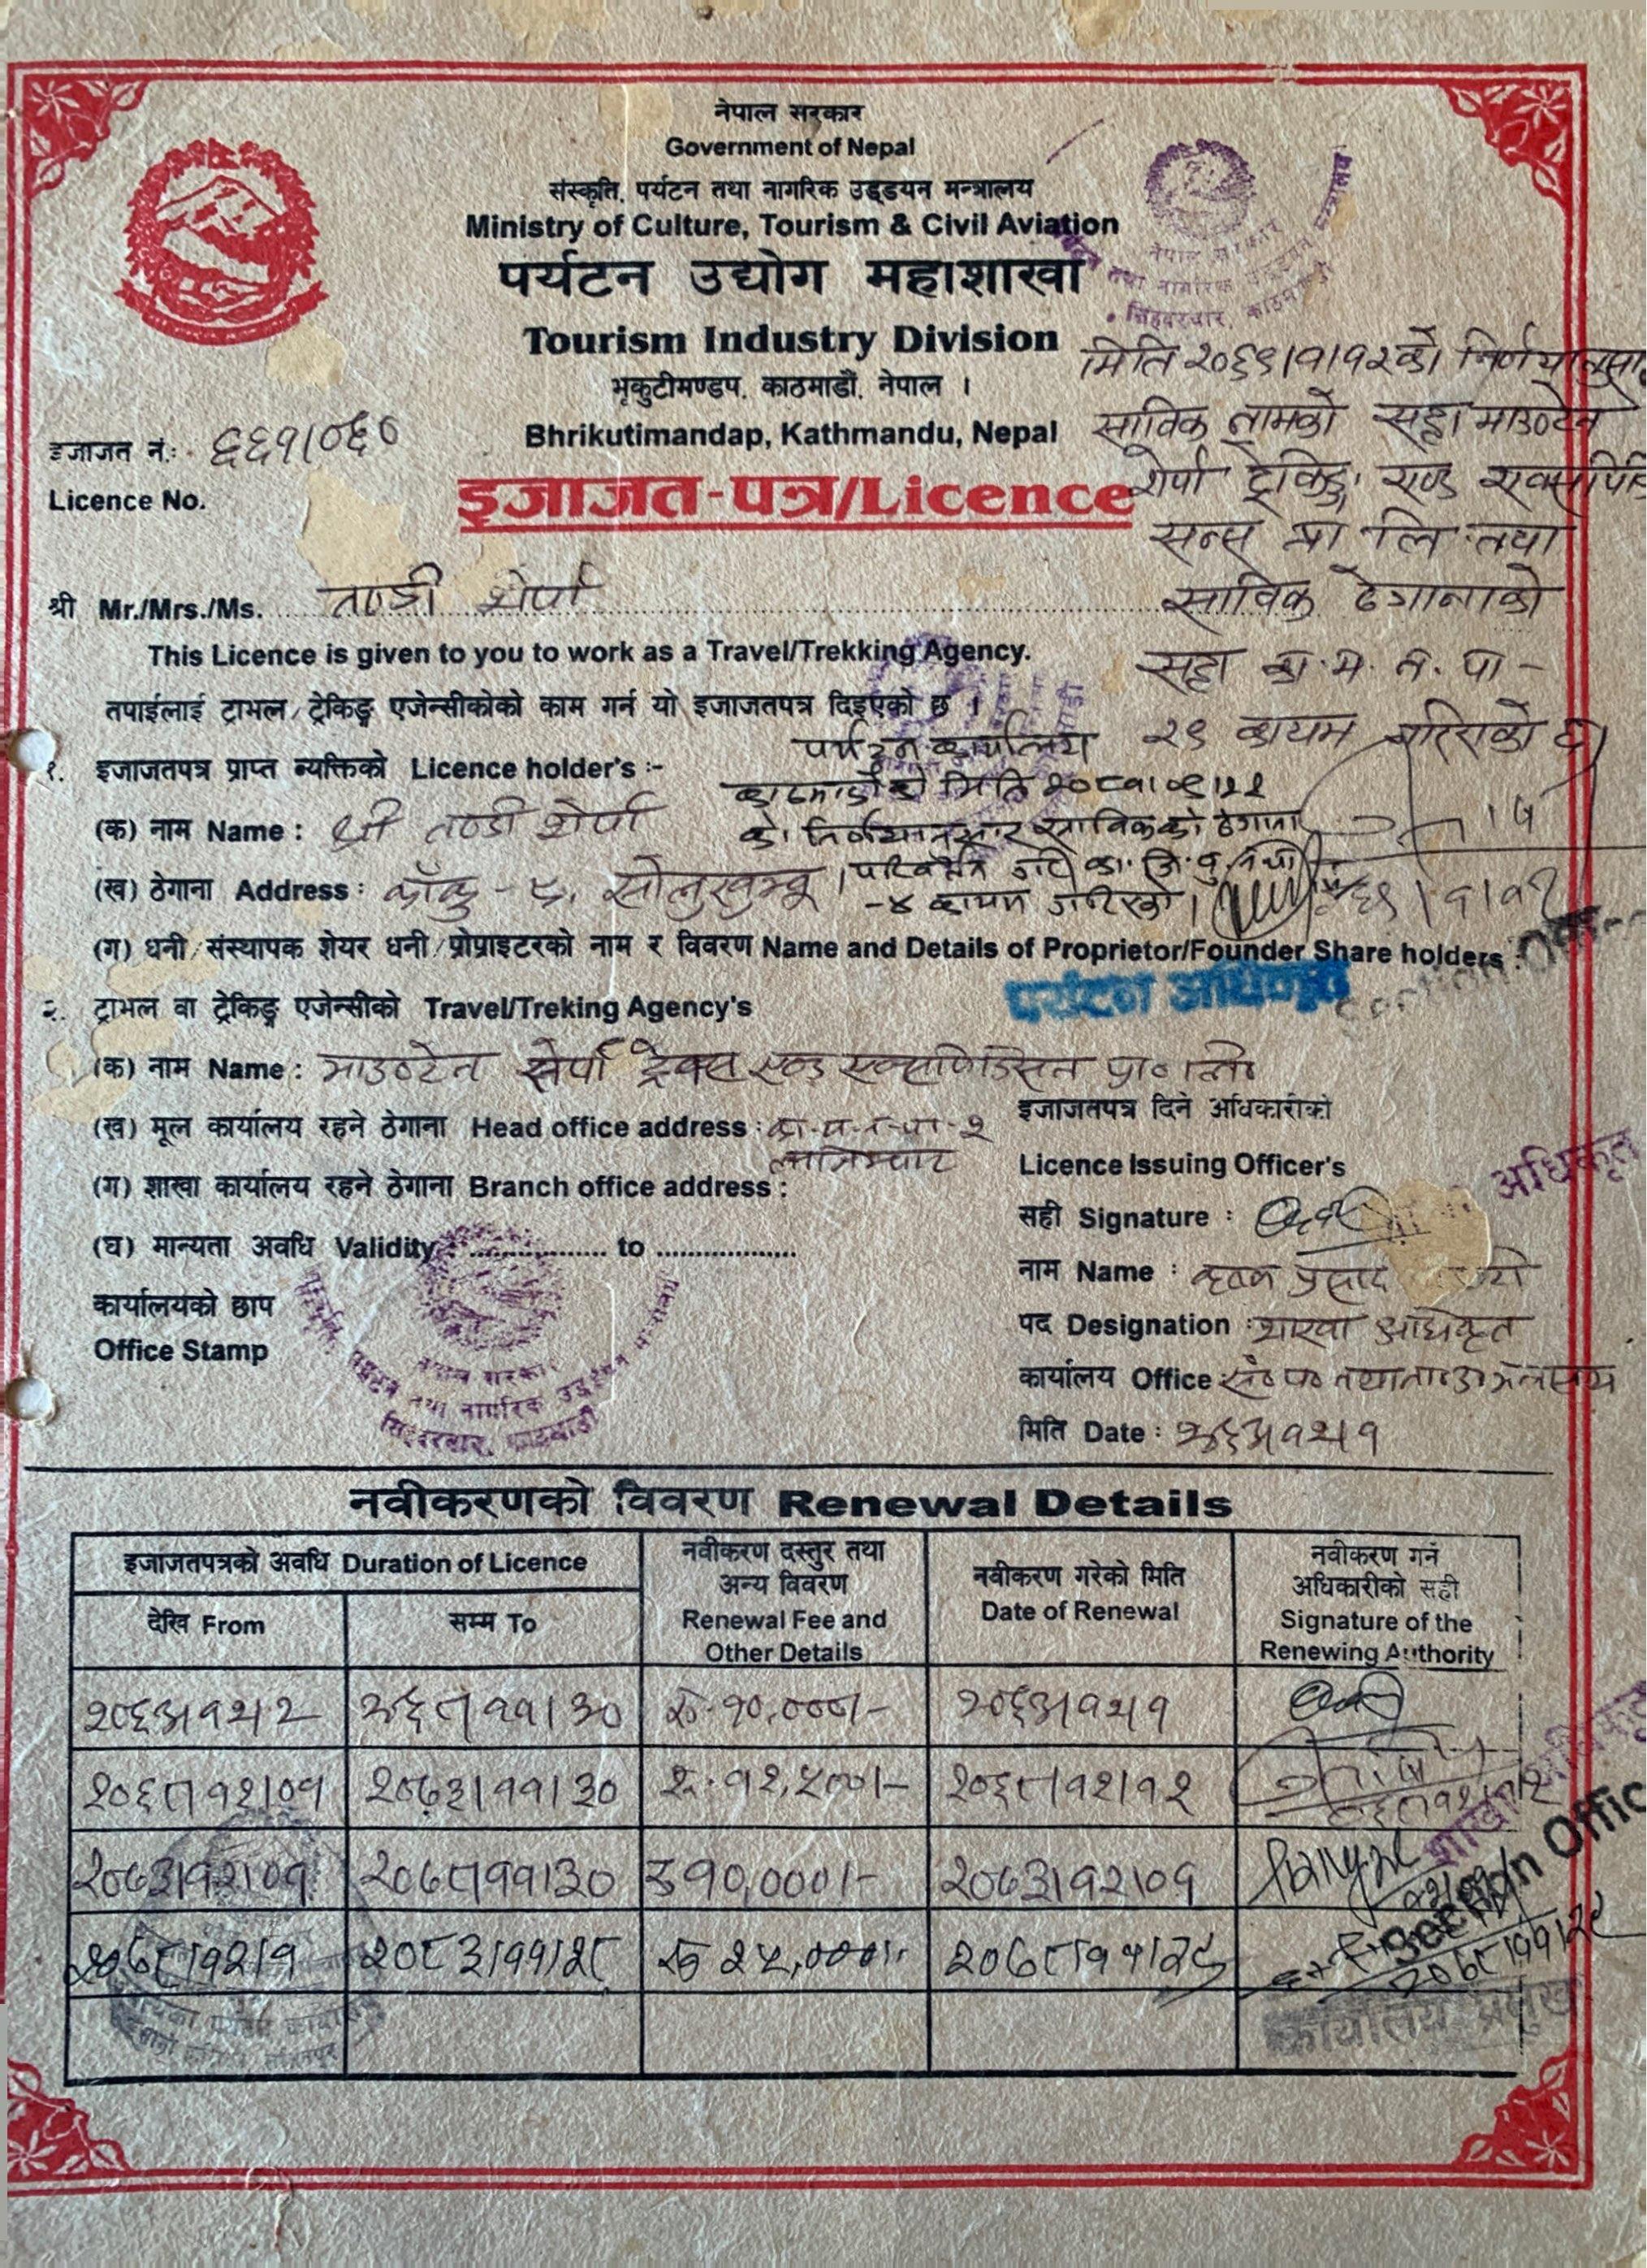 नेपाल सरकार
Government of Nepal
संस्कृति, पर्यटन तथा नागरिक उड्डयन मन्त्रालय
Ministry of Culture, Tourism & Civil Aviation
पर्यटन उद्योग महाशाखा
Tourism Industry Division
भृकुटीमण्डप, काठमाडौं, नेपाल ।
Bhrikutimandap, Kathmandu, Nepal
नेपाल सरकार
तथा नागरिक उड्डयन मन्त्रालय
सिंहदरवार, काठमाण्डौ
इजाजत नं.: ६६१/०६०
Licence No.
इजाजत-पत्र/Licence
मिति २०६९/१/१२को निर्णयानुसार
साविक नामको सट्टा माउण्टेन
शेर्पा ट्रेकिङ्ग एण्ड एक्सपिडि
सन्स प्रा लि तथा
साविक ठेगानाको
सट्टा का.म.न.पा-
२९ कायम गरिएको छ
श्री Mr./Mrs./Ms. ताण्डी शेर्पा
This Licence is given to you to work as a Travel/Trekking Agency.
तपाईलाई ट्राभल/ट्रेकिङ्ग एजेन्सीकोको काम गर्न यो इजाजतपत्र दिइएको छ ।
पर्यटन कार्यालय
काठमाडौंको मिति २०८१/०९/२२
को निर्णयानुसार साविकको ठेगाना
परिवर्तन गरी का.जि.बु.नपा
-४ कायम गरिएको ।
१. इजाजतपत्र प्राप्त व्यक्तिको Licence holder's :-
(क) नाम Name : श्री ताण्डी शेर्पा
(ख) ठेगाना Address : काँकु - ९, सोलुखुम्बू
(ग) धनी/संस्थापक शेयर धनी/प्रोप्राइटरको नाम र विवरण Name and Details of Proprietor/Founder Share holders :
पर्यटन अधिकृत
२. ट्राभल वा ट्रेकिङ्ग एजेन्सीको Travel/Treking Agency's
(क) नाम Name : माउण्टेन सेर्पा ट्रेक्स एण्ड एक्सपिडिसन प्रा० लि०
(ख) मूल कार्यालय रहने ठेगाना Head office address : का.म.न.पा-२
लाजिम्पाट
(ग) शाखा कार्यालय रहने ठेगाना Branch office address :
(घ) मान्यता अवधि Validity : .................. to ..................
कार्यालयको छाप
Office Stamp
नेपाल सरकार
संस्कृति, पर्यटन तथा नागरिक उड्डयन मन्त्रालय
सिंहदरवार, काठमाडौं
इजाजतपत्र दिने अधिकारीको
Licence Issuing Officer's
अधिकृत
सही Signature :
नाम Name : प्रसाद
पद Designation : शाखा अधिकृत
कार्यालय Office
मिति Date :
नवीकरणको विवरण Renewal Details
इजाजतपत्रको अवधि Duration of Licence
देखि From
सम्म To
नवीकरण दस्तुर तथा
अन्य विवरण
Renewal Fee and
Other Details
नवीकरण गरेको मिति
Date of Renewal
नवीकरण गर्ने
अधिकारीको सही
Signature of the
Renewing Authority
रु.१०,०००/-
२०६८/१२/०१ २०७३/११/३० रु.१२,५००/- २०६८/१२/१२
२०७३/१२/०१ २०७८/११/३० रु १०,०००/- २०७३/१२/०१
२०७८/१२/१ २०८३/११/२८ रु २५,०००/- २०७८/११/२९
शाखा अधिकृत
Section Offic
२०७८/११/२९
कार्यालय प्रमुख